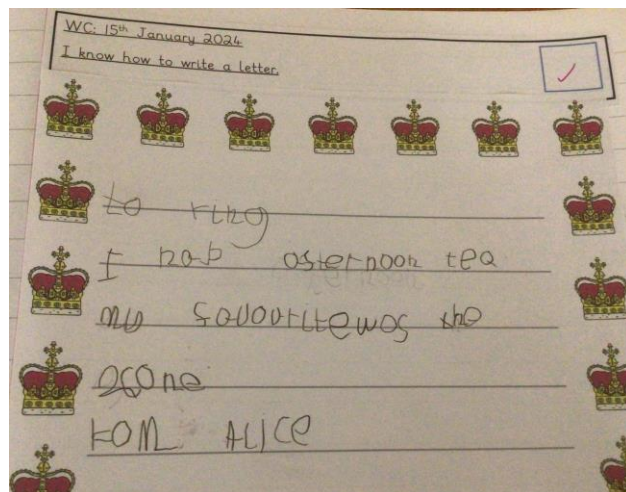 WC: 15th January 2024
I know how to write a letter.
to ring
I had afternoon tea
my favourite was the
scone
fom ALICe